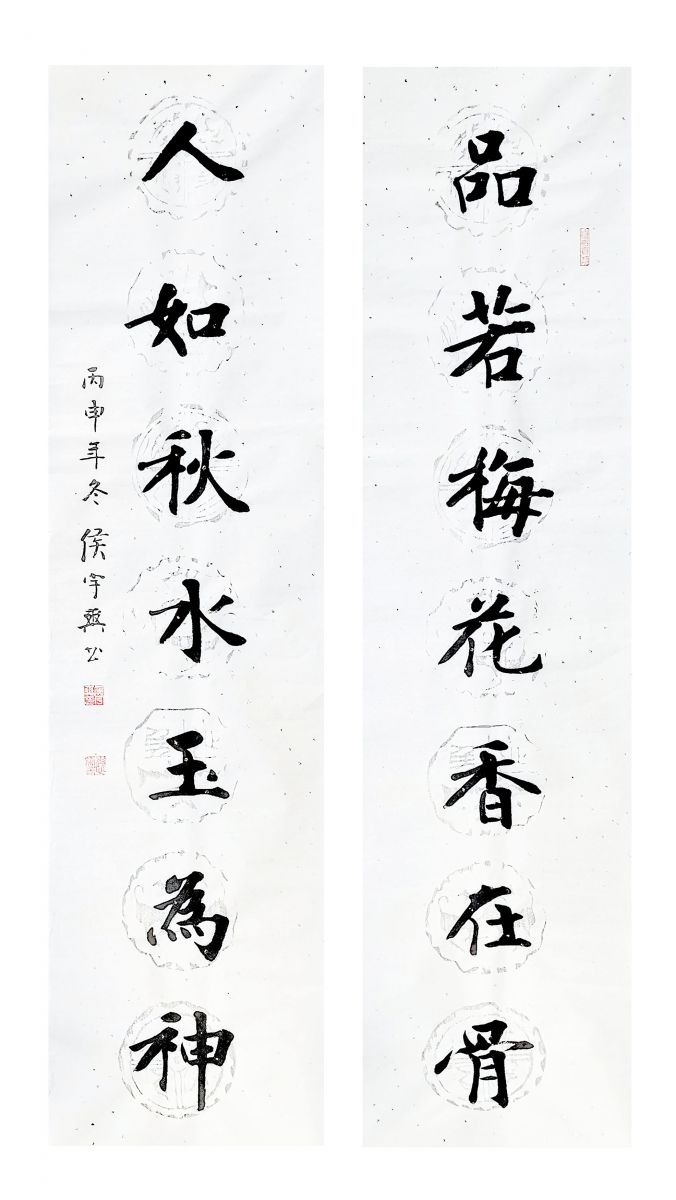 品若梅花香在骨
人如秋水玉為神
丙申年冬侯宇燕公